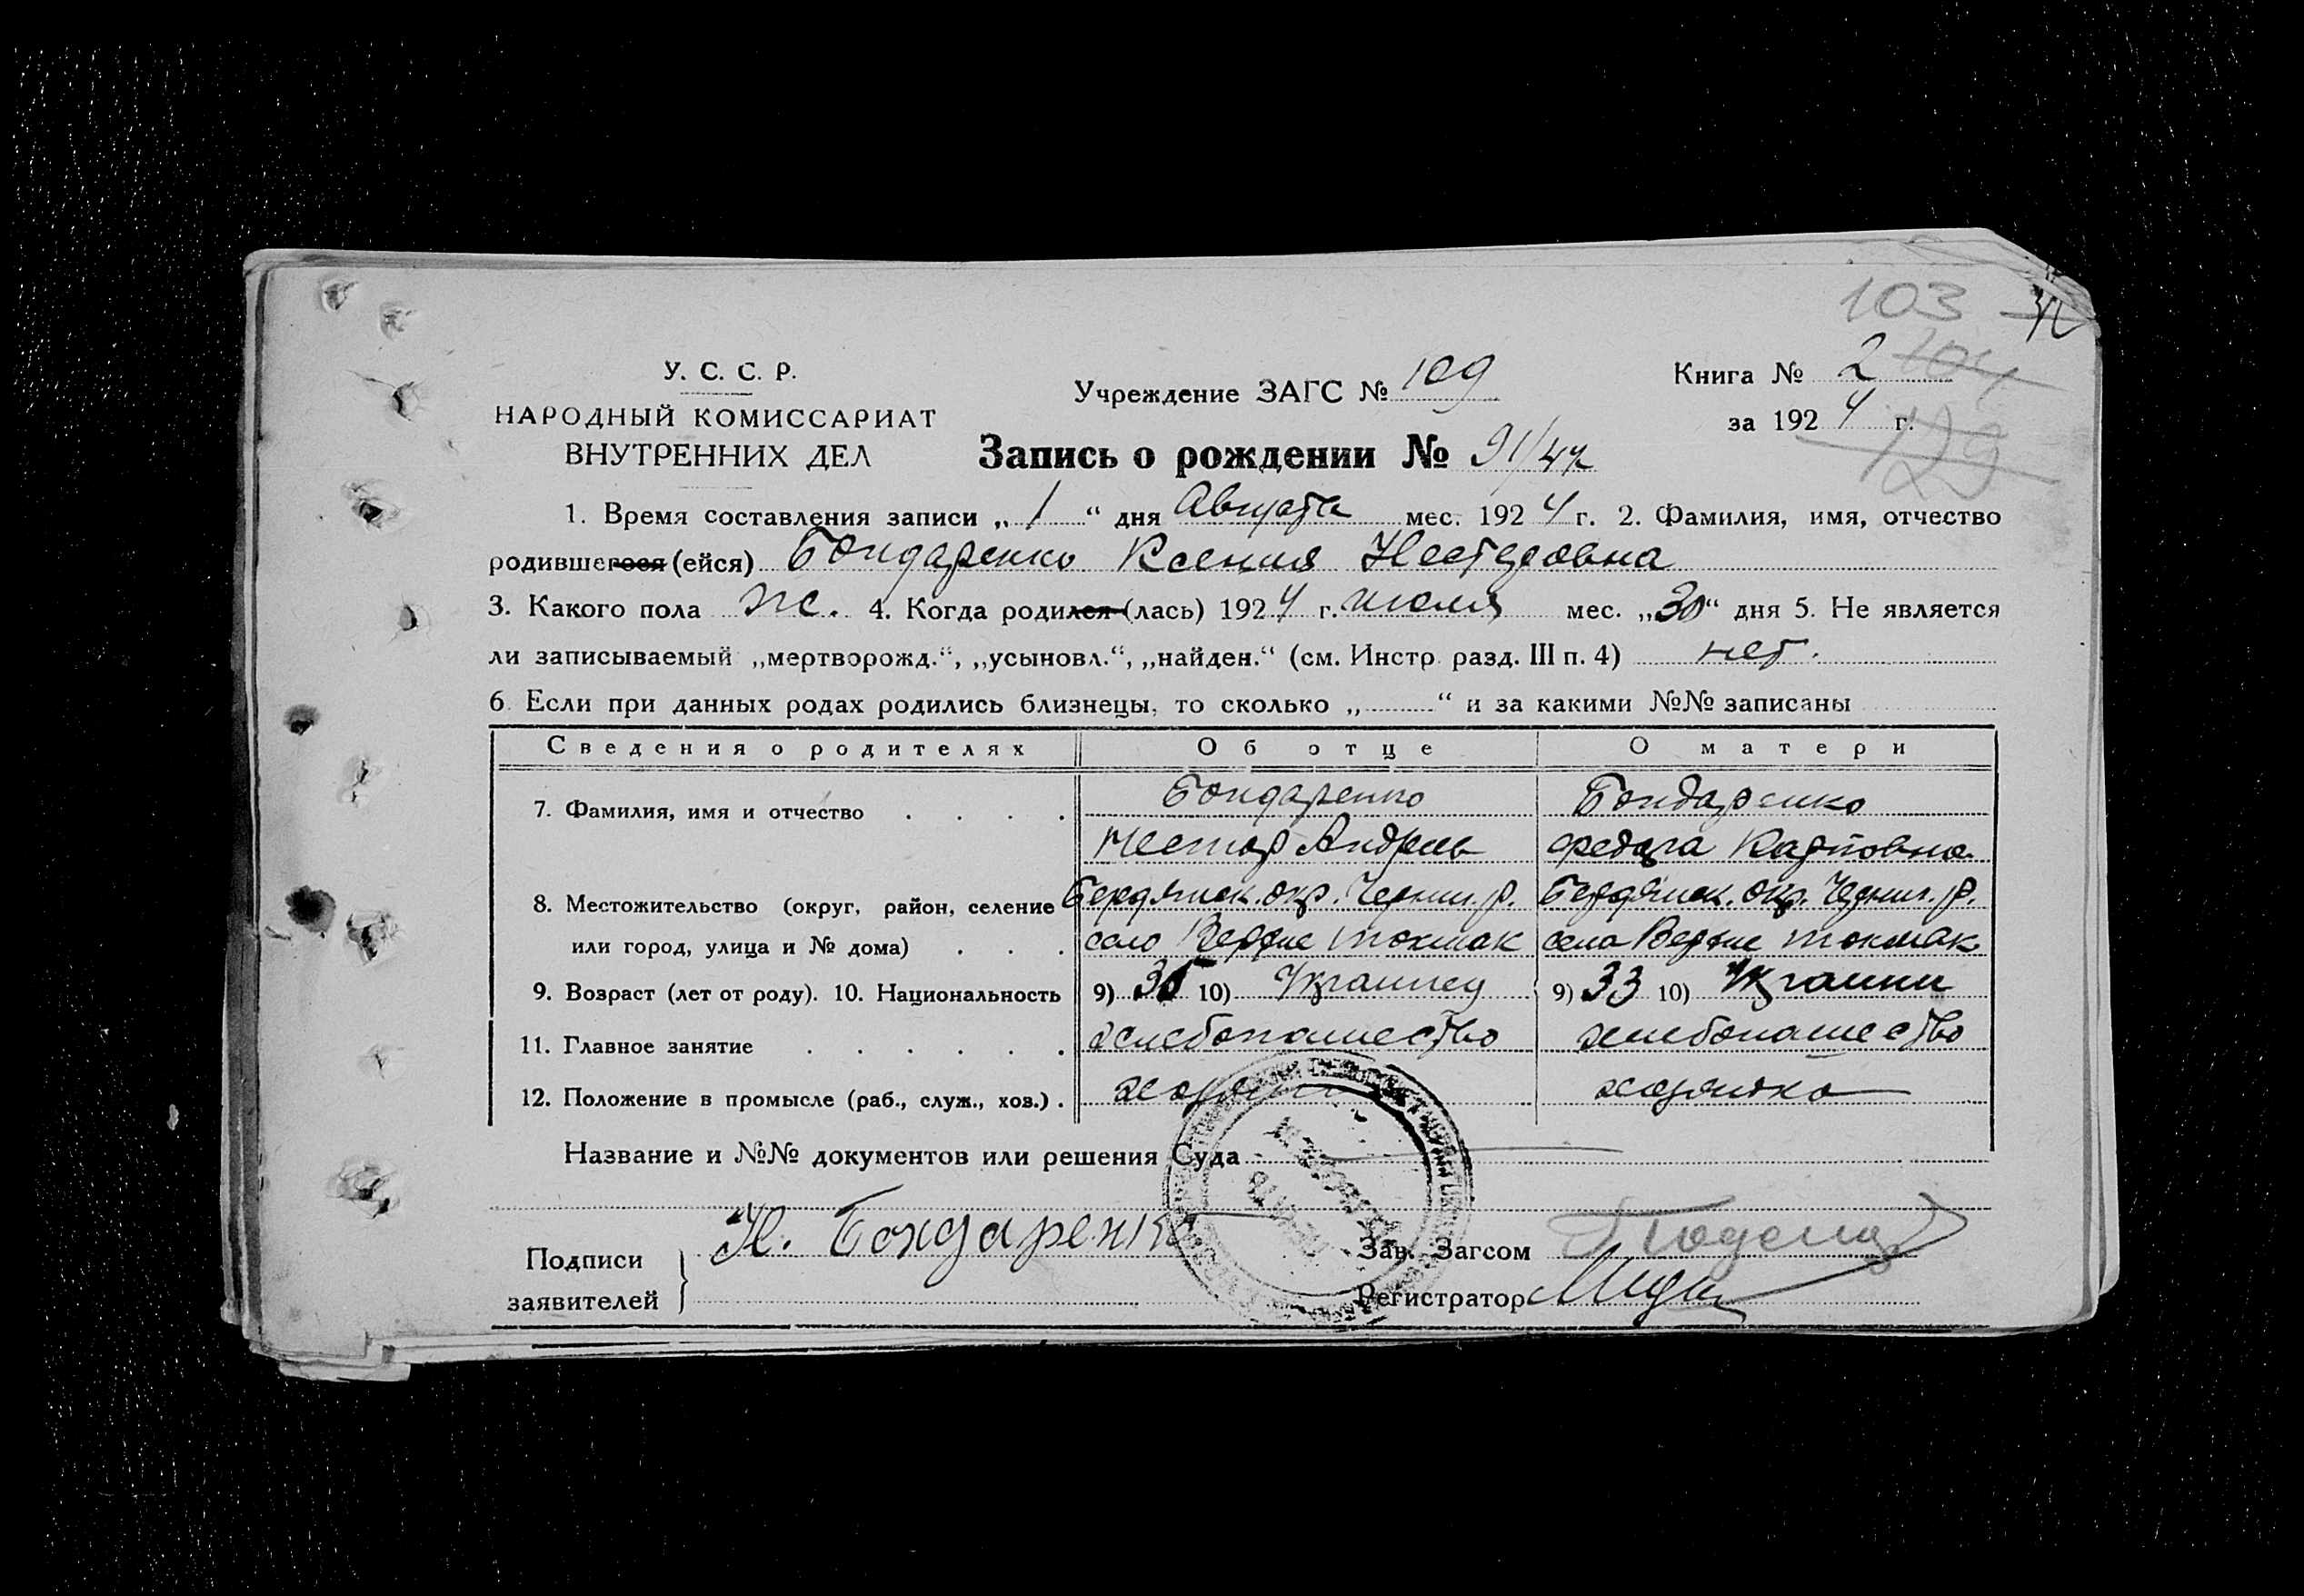 103
У. С. С. Р.
НАРОДНЫЙ КОМИССАРИАТ
ВНУТРЕННИХ ДЕЛ
Учреждение ЗАГС № 109
Книга № 2 104
за 1924 г.
129
Запись о рождении № 91/42
1. Время составления записи „ 1 “ дня Августа мес. 1924 г. 2. Фамилия, имя, отчество
родившегося (ейся) Бондаренко Ксения Нестеровна
3. Какого пола ж. 4. Когда родился (лась) 1924 г. июля мес. „30“ дня 5. Не является
ли записываемый „мертворожд.“, „усыновл.“, „найден.“ (см. Инстр. разд. III п. 4) нет.
6. Если при данных родах родились близнецы, то сколько „ “ и за какими №№ записаны
Сведения о родителях Об отце О матери
7. Фамилия, имя и отчество Бондаренко Бондаренко
Нестор Андреев Карповна
8. Местожительство (округ, район, селение Бердянск. окр. Черниг. р. Бердянск. окр. Черниг. р.
или город, улица и № дома) село Верхне Токмак села Верхне Токмак
9. Возраст (лет от роду). 10. Национальность 9) 35 10) Украинец 9) 33 10) Украин
11. Главное занятие хлебопашество хлебопашество
12. Положение в промысле (раб., служ., хоз.). хозяин хозяйка
Название и №№ документов или решения Суда
Подписи заявителей Н. Бондаренко
Зав. Загсом
Регистратор